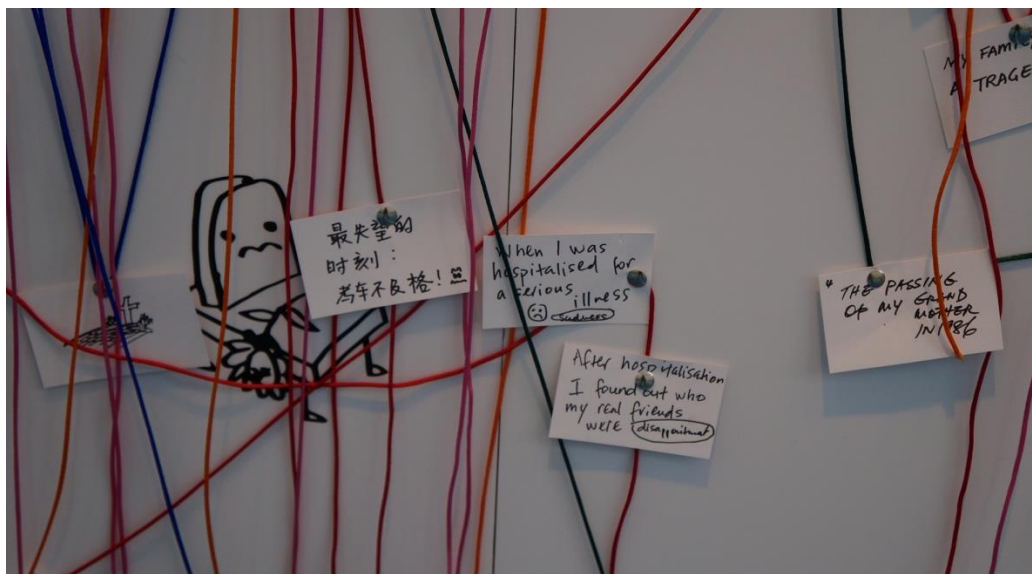 最失望的
时刻：
考车不及格！
When I was
hospitalised for
a serious
illness
sadness
After hospitalisation
I found out who
my real friends
were disappointment
"THE PASSING
OF MY GRAND
MOTHER
IN 1986
MY FAMIL
A TRAGE